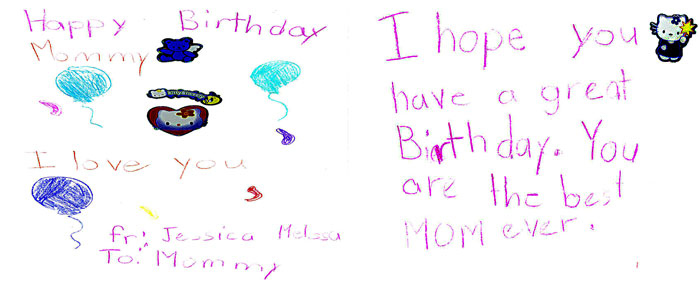 Happy Birthday
Mommy
I love you
fr: Jessica Melissa
To: Mommy
I hope you
have a great
Birthday. You
are the best
MOM ever.